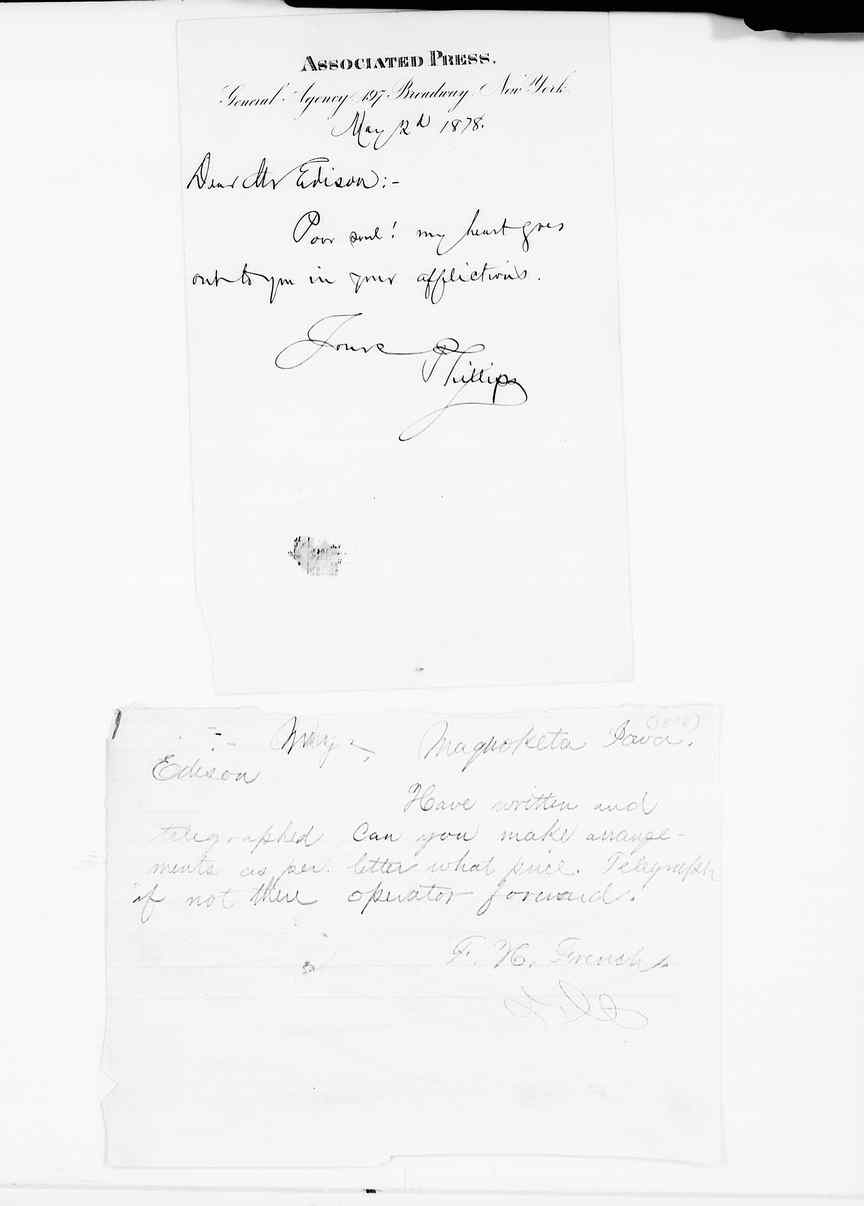 ASSOCIATED PRESS.
General Agency 197 Broadway, New York.
May 2d 1878.
Dear Mr Edison:-
Poor soul! my heart goes
out to you in your afflictions.
Yours
Phillips
Maquoketa Iowa.
Edison
Have written and
telegraphed Can you make arrange-
ments as per. letter what price. Telegraph
if not there operator forward.
F. H. French